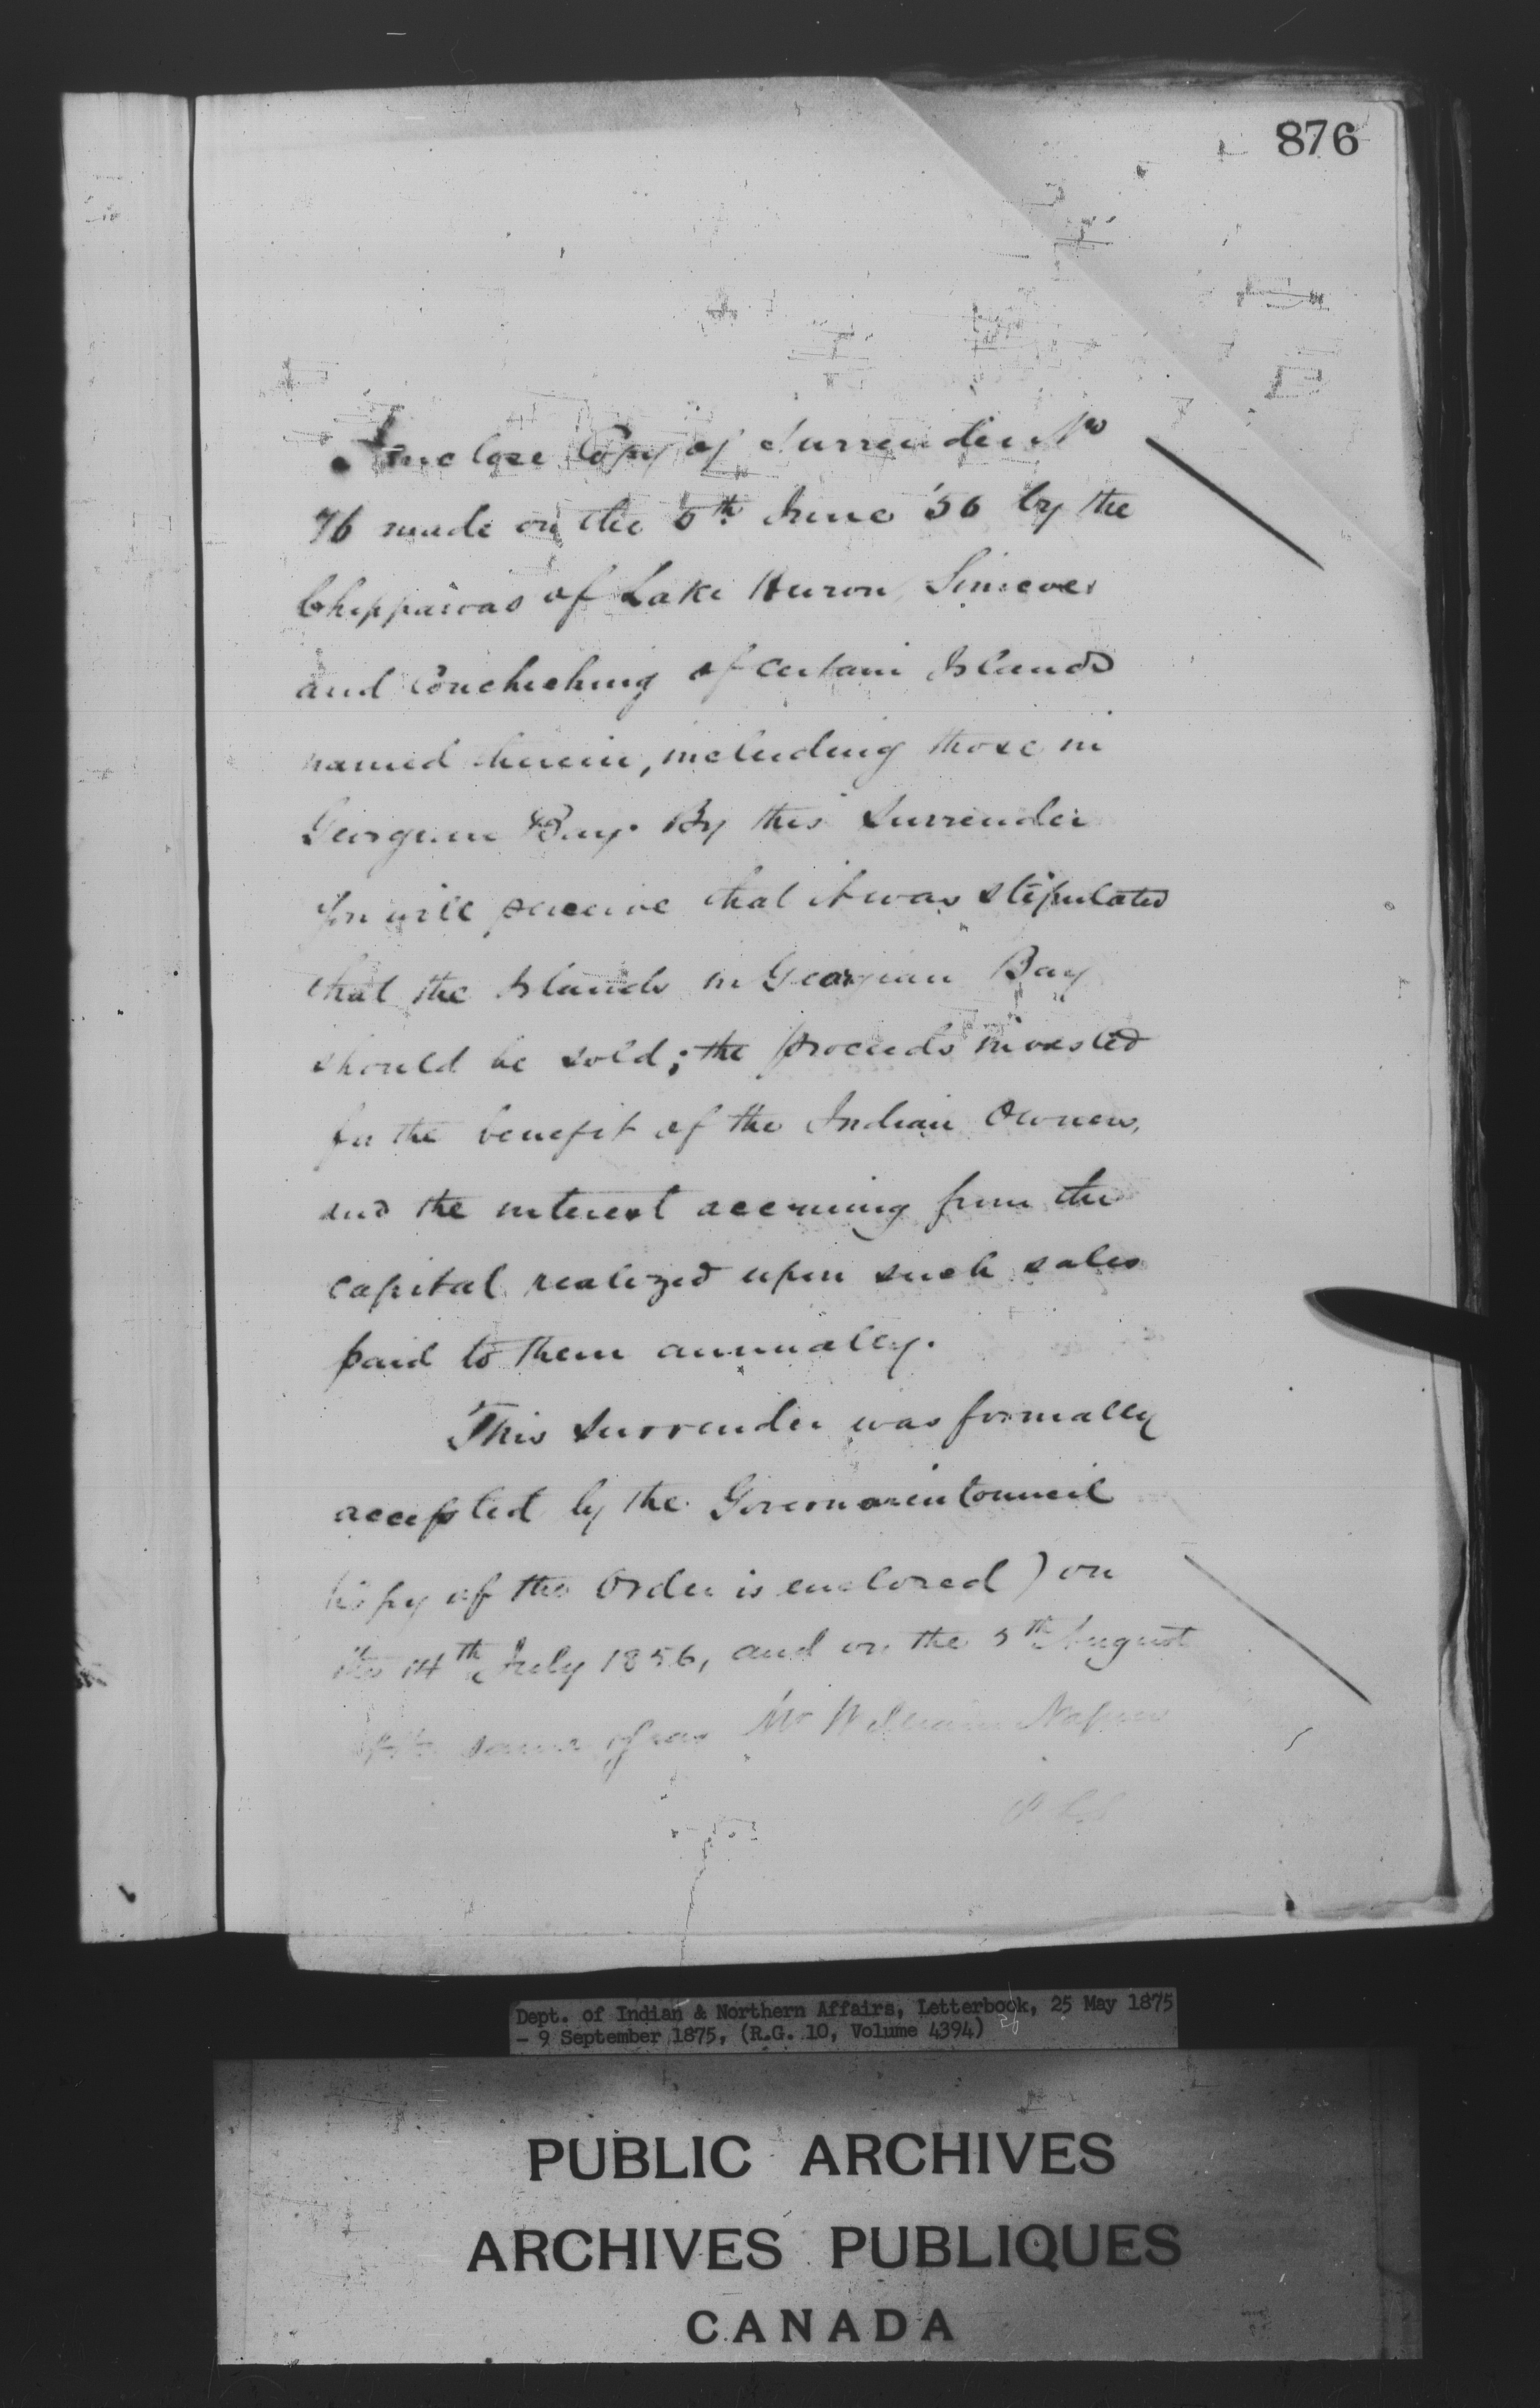 876
I enclose Copy of Surrender No
76 made on the 5th June '56 by the
Chippawas of Lake Huron, Simcoe,
and Couchiching of certain Islands
named therein, including those in
Georgian Bay. By this Surrender
you will perceive that it was stipulated
that the Islands in Georgian Bay
should be sold; the proceeds invested
for the benefit of the Indian Owners,
and the interest accruing from the
capital realized upon such sales
paid to them annually.
This Surrender was formally
accepted by the Governor in Council
Copy of the Order is enclosed) on
the 14th July 1856, and on the 5th August
same year Mr William Napier
Dept. of Indian & Northern Affairs, Letterbook, 25 May 1875
- 9 September 1875, (R.G. 10, Volume 4394)
PUBLIC ARCHIVES
ARCHIVES PUBLIQUES
CANADA